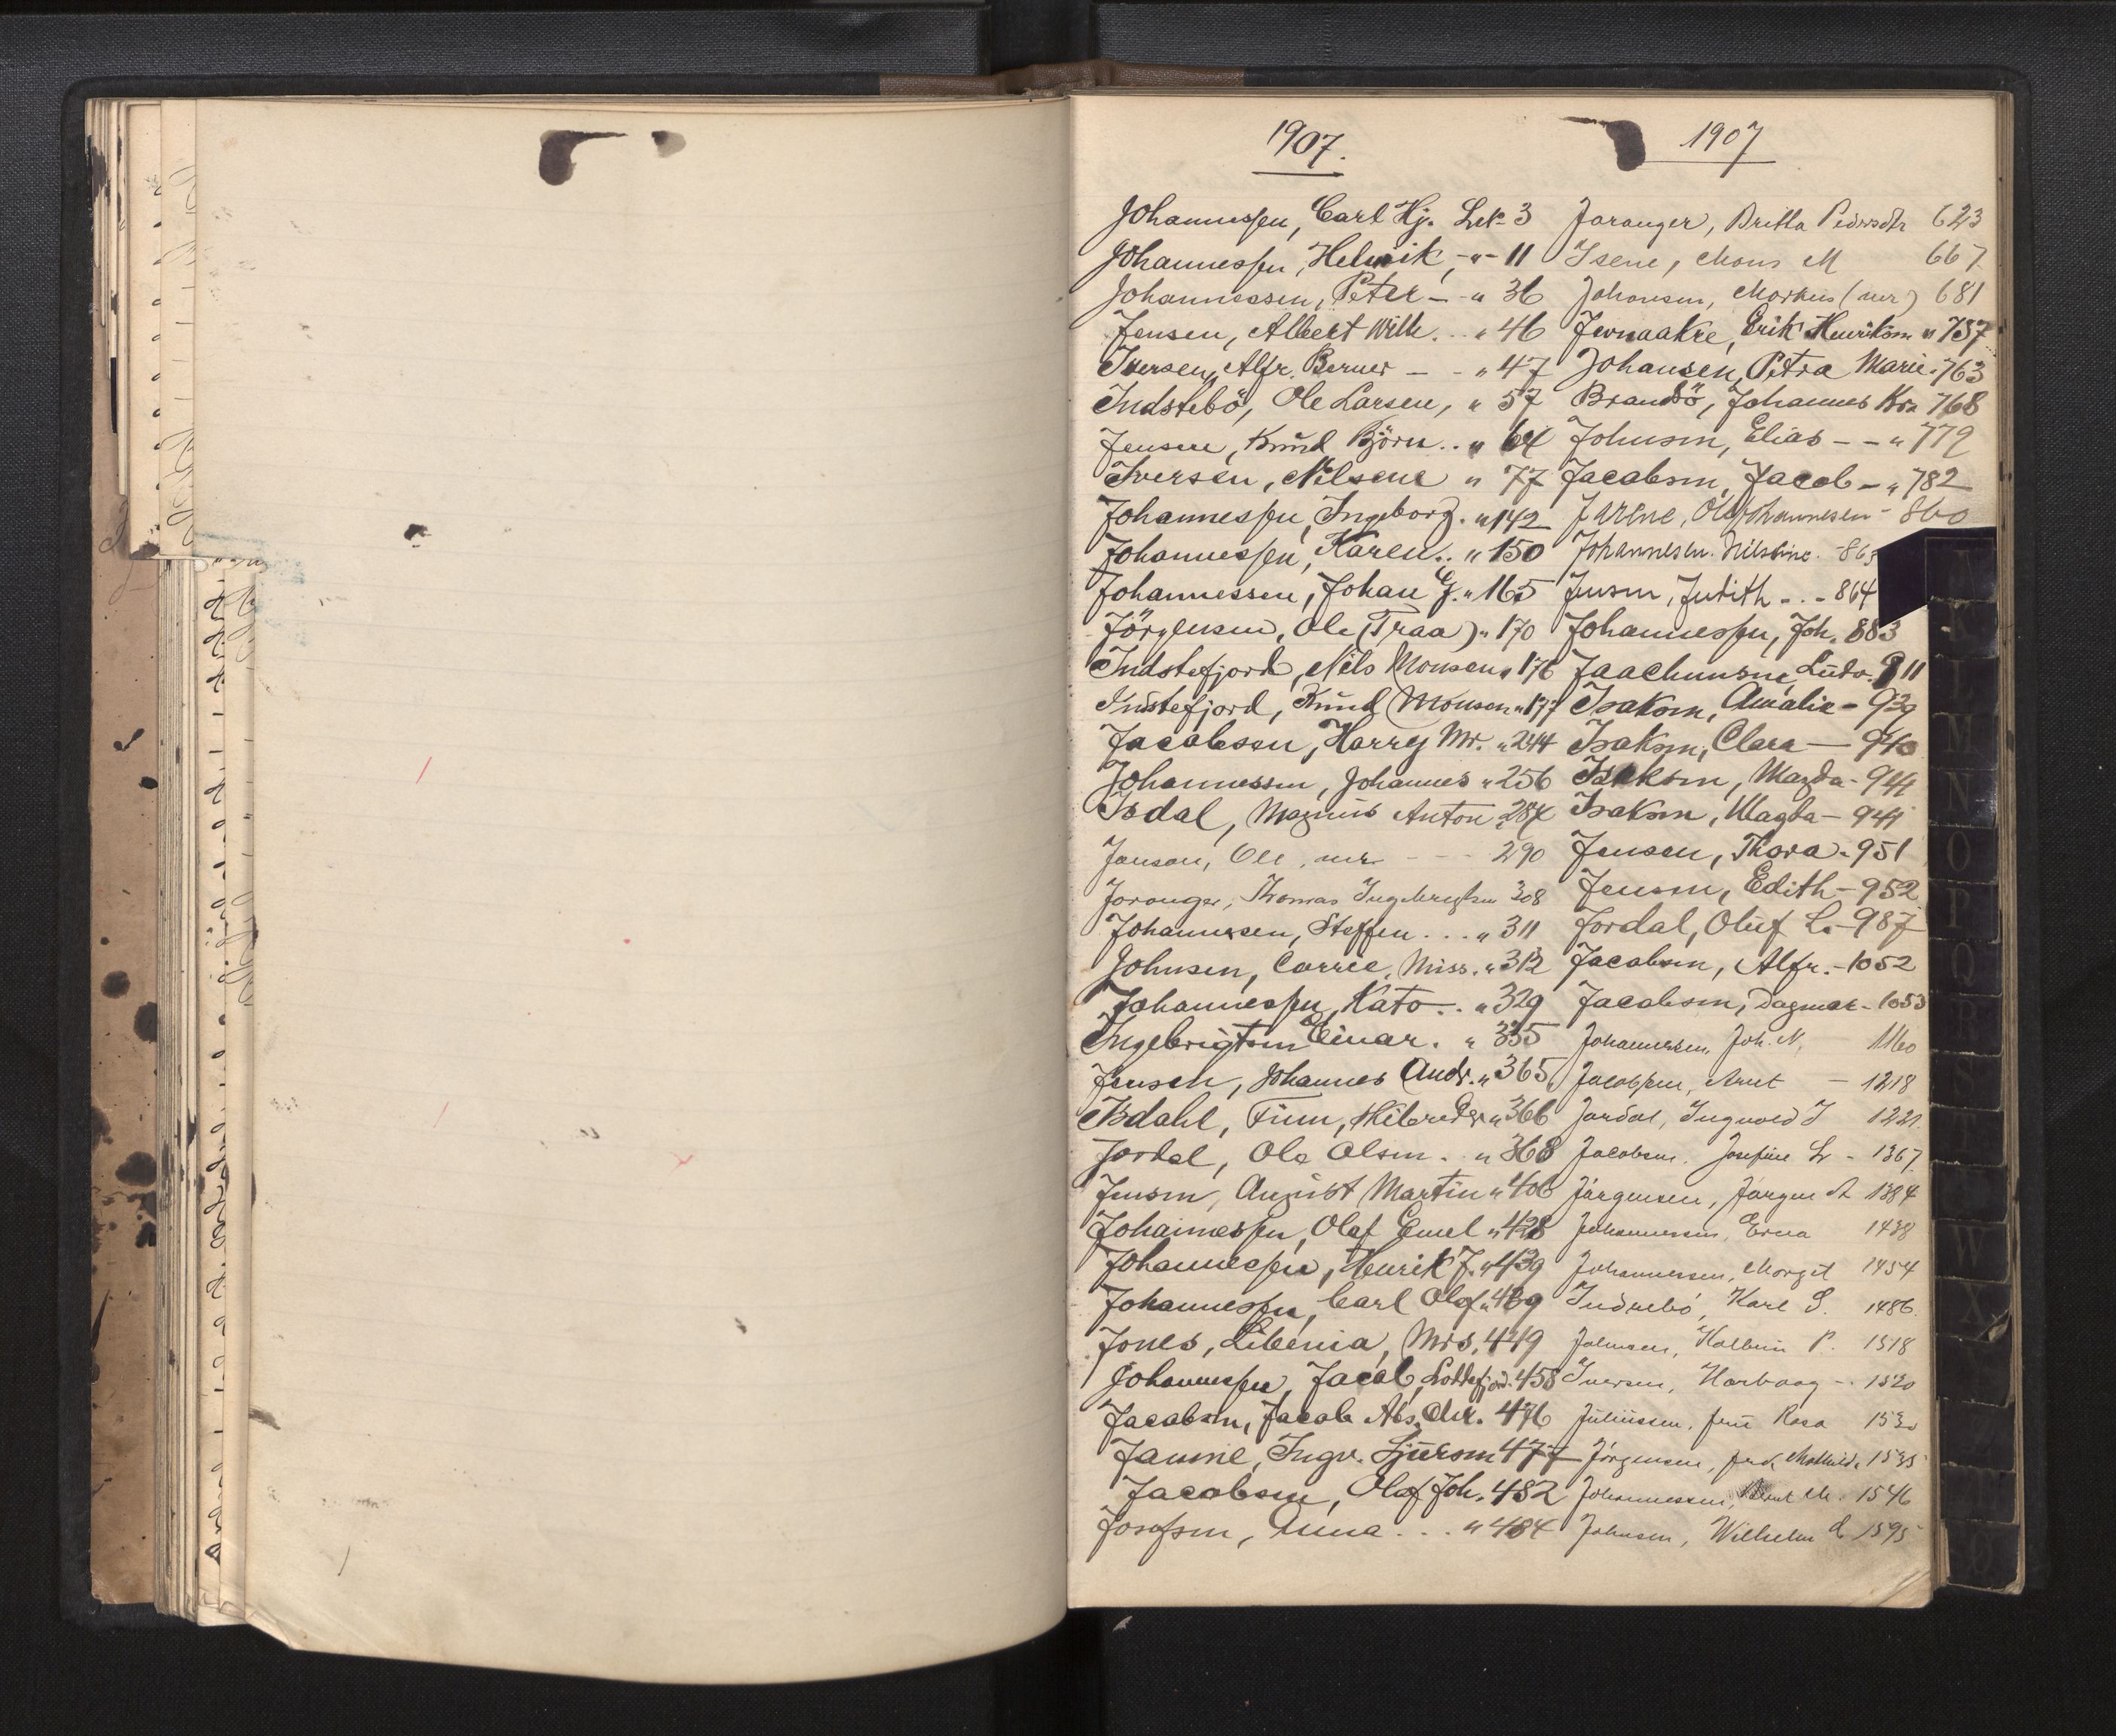 1907.
Johannessen, Carl Hj. Lek. 3
Johannessen, Helmik, -"- 11
Johannessen, Peter - -" 36
Jensen, Albert Wilh. .. " 46
Iversen, Alfr. Berner - - " 47
Indstebö, Ole Larsen, " 57
Jensen, Knud Björn .. " 64
Iversen, Nilsene " 77
Johannessen, Ingeborg. " 142
Johannessen, Karen.. " 150
Johannessen, Johan G. " 165
Jörgensen, Ole (Traa) " 170
Indstefjord, Nils Monsen " 176
Indstefjord, Knud Monsen " 177
Jacobsen, Harry Mr. " 244
Johannessen, Johannes " 256
Isdal, Magnus Anton 284
Janson, Ole, mr - - - 290
Joranger, Thomas Ingebrigtsen 308
Johannessen, Steffen ... " 311
Johnsen, Carrie, Miss. " 312
Johannessen, Kato .. " 329
Ingebrigtsen Einar. " 335
Jensen, Johannes Andr. " 365
Isdahl, Finn, " 366
Jordal, Ole Olsen. " 368
Jensen, August Martin " 406
Johannessen, Olaf Emil " 428
Johannessen, Henrik J. " 439
Johannessen, Carl Olaf "
Jones, Libenia, Mrs. 449
Johannessen, Jacob, Loddefjord. 458
Jacobsen, Jacob Abs. 476
Jamne, Ingv. Sjursen 477
Jacobsen, Olaf Joh. 482
Josefsen, Anna ... " 484
1907
Joranger, Britta Pedersdtr 623
Isene, Mons M 667
Johansen, Markus (mr) 681
Jernaakre, Erik Henriksen " 757
Johansen, Petra Marie. 763
Brandö, Johannes Kr. 768
Johnsen, Elias - - " 779
Jacobsen, Jacob - " 782
Jarene, Ole Johannesen - 860
Johannesen. Nilsine. -
Jensen, Judith .. - 864
Johannessen, Joh. 883
Jaachimsen, Ludv. 911
Isaksen, Amalie - 939
Isaksen, Clara — 940
Isaksen, Magda - 944
Isaksen, Magda - 944
Jensen, Thora - 951
Jensen, Edith - 952
Jordal, Oluf L. - 987
Jacobsen, Alfr. - 1052
Jacobsen, Dagmar - 1053
Johannessen, Joh. N. 1160
Jacobsen, Arnt - 1218
Jordal, Ingvald J 1221
Jacobsen, Josefine L - 1367
Jørgensen, Jørgen A 1384
Johannessen, Erna 1438
Johannessen, Margit 1454
Indrebö, Karl S. 1486.
Johnsen, Kolbein P. 1518
Iversen, - 1520
Juliussen, fru Rosa
Jörgensen, Mathild. 1535
Johannessen, M. 1546
Johnsen, Wilhelm 1595
M
N
O
P
Q
R
S
W
X